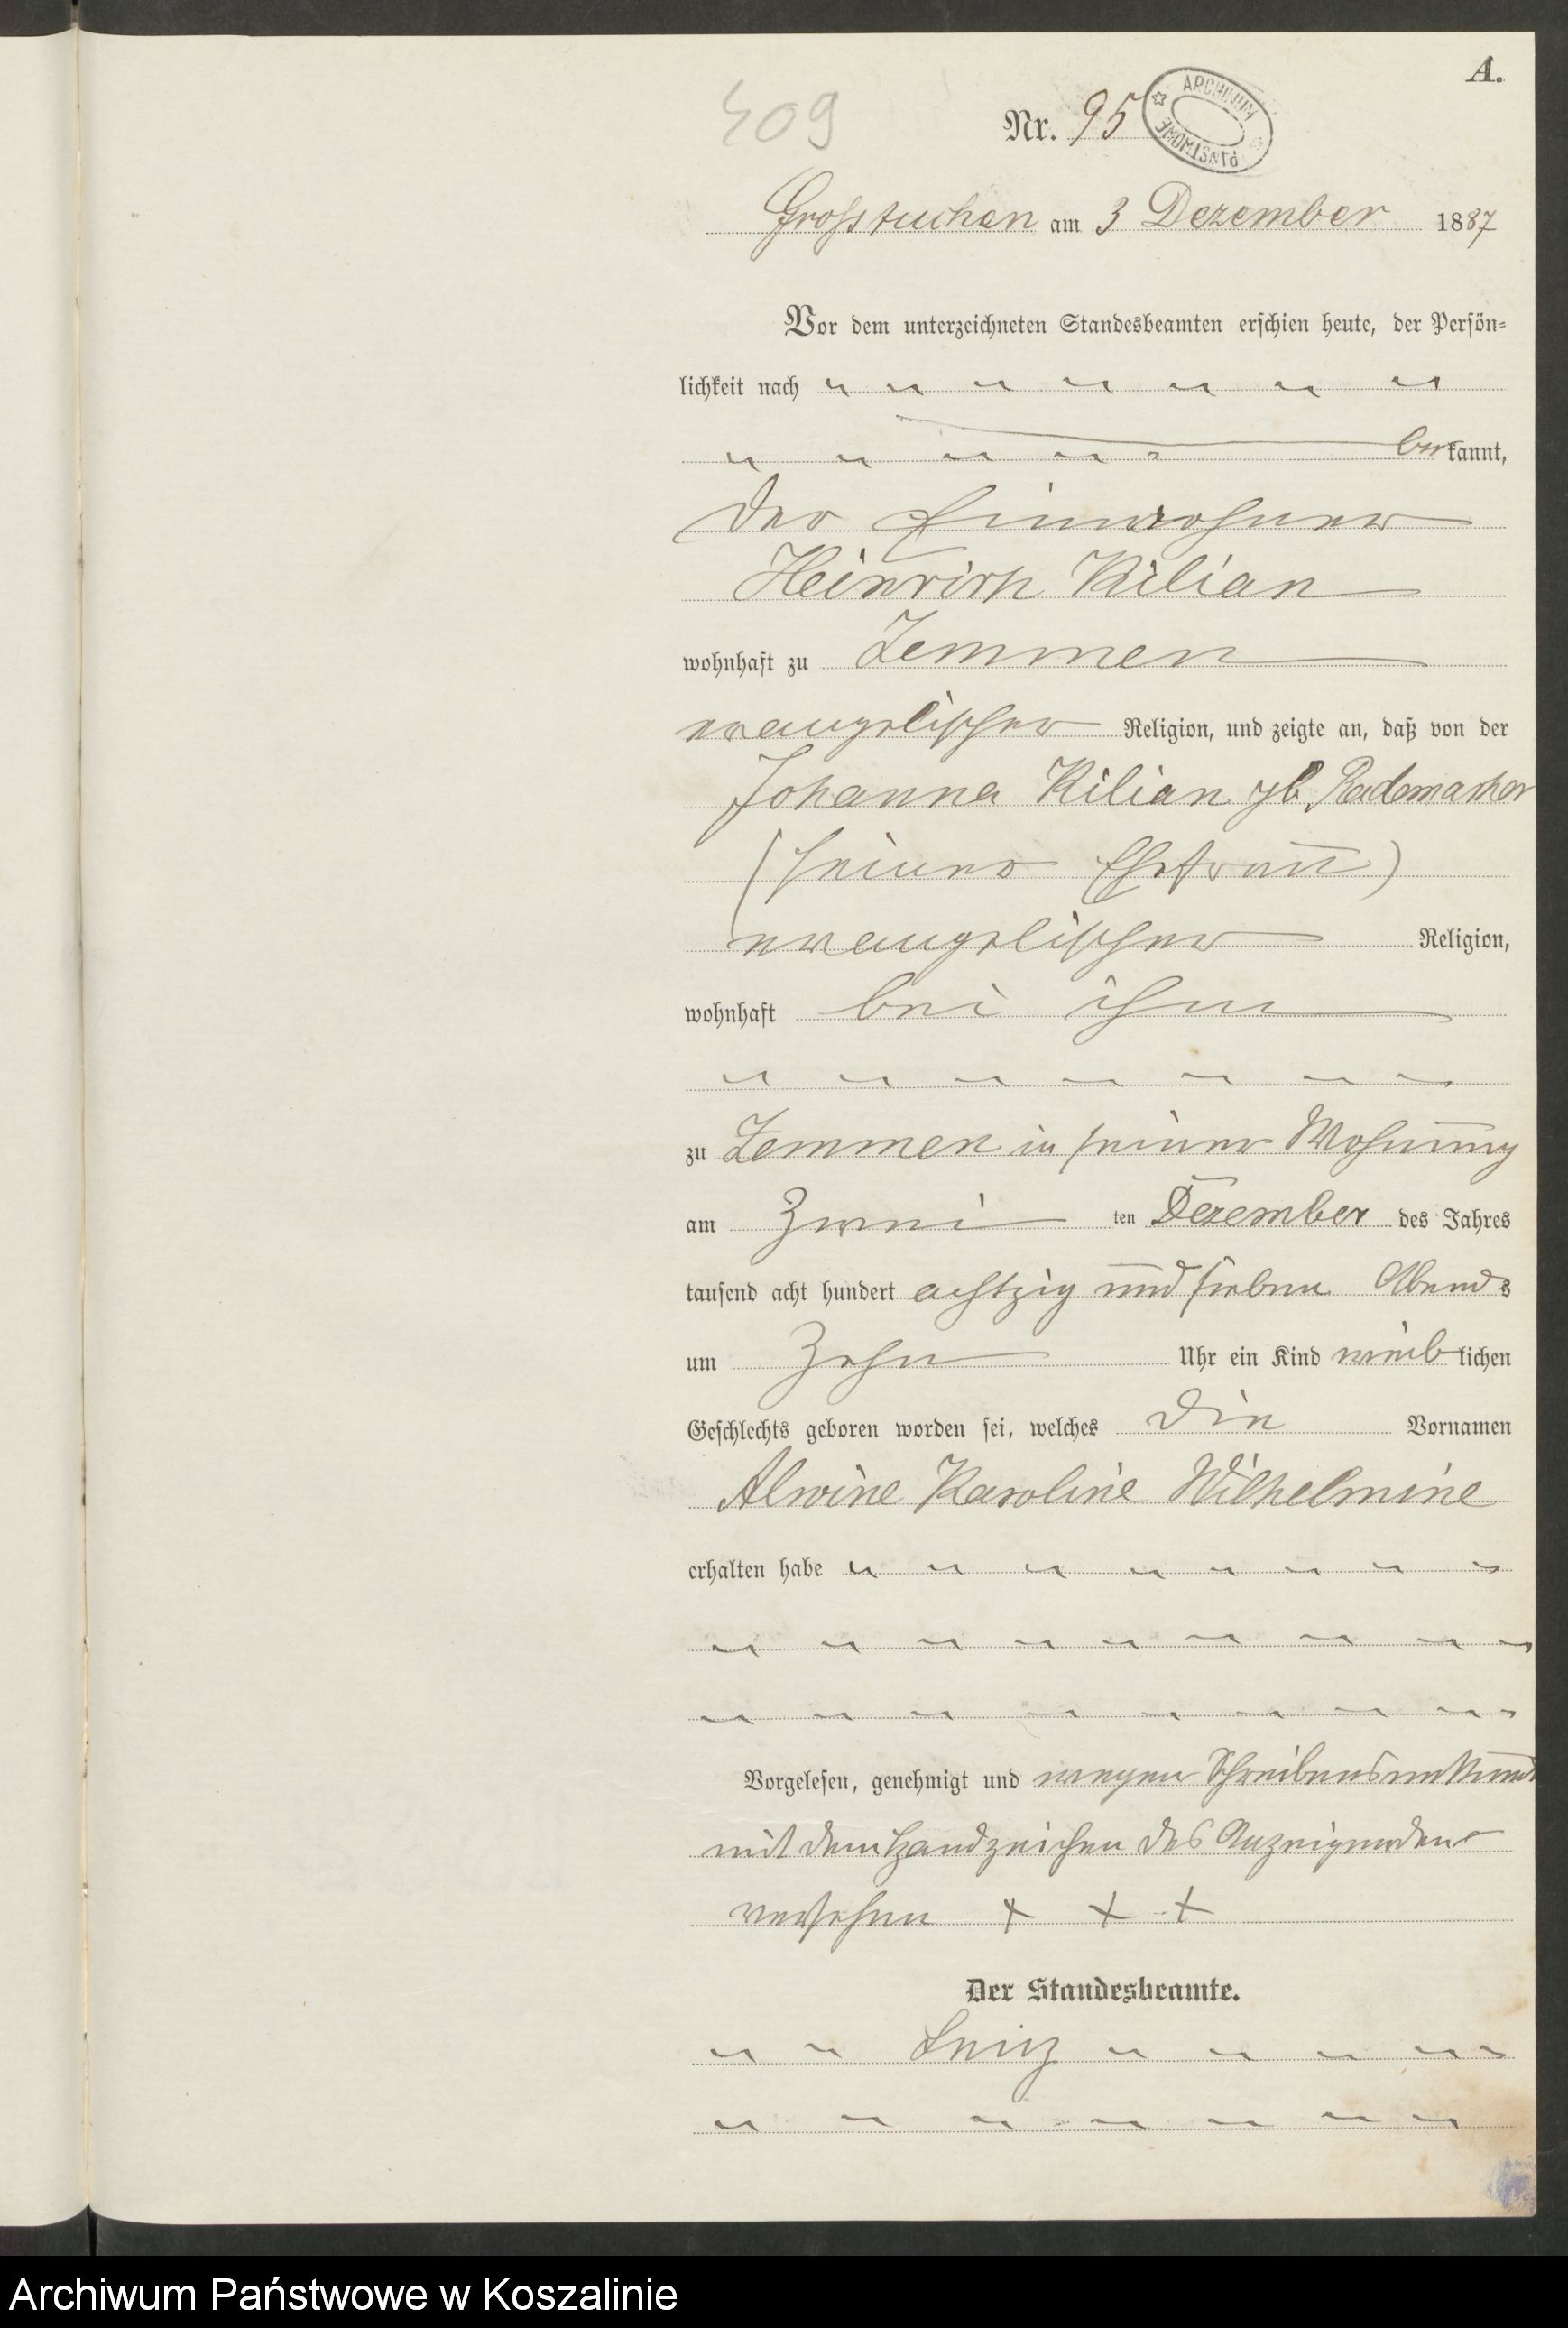 A.
409
Nr. 95
ARCHIWUM PAŃSTWOWE
Grosstuchen am 3 Dezember 1887
Vor dem unterzeichneten Standesbeamten erschien heute, der Persön-
lichkeit nach
bekannt,
der Einwohner
Heinrich Kilian
wohnhaft zu Zemmen
evangelischer Religion, und zeigte an, daß von der
Johanna Kilian gb Rademacher
(seiner Ehefrau)
evangelischer Religion,
wohnhaft bei ihm
zu Zemmen in seiner Wohnung
am Zwei ten Dezember des Jahres
tausend acht hundert achtzig und sieben Abends
um Zehn Uhr ein Kind weiblichen
Geschlechts geboren worden sei, welches die Vornamen
Alwine Karoline Wilhelmine
erhalten habe
Vorgelesen, genehmigt und wegen Schreibensunkunde
mit dem Handzeichen des Anzeigenden
versehen + + +
Der Standesbeamte.
Archiwum Państwowe w Koszalinie